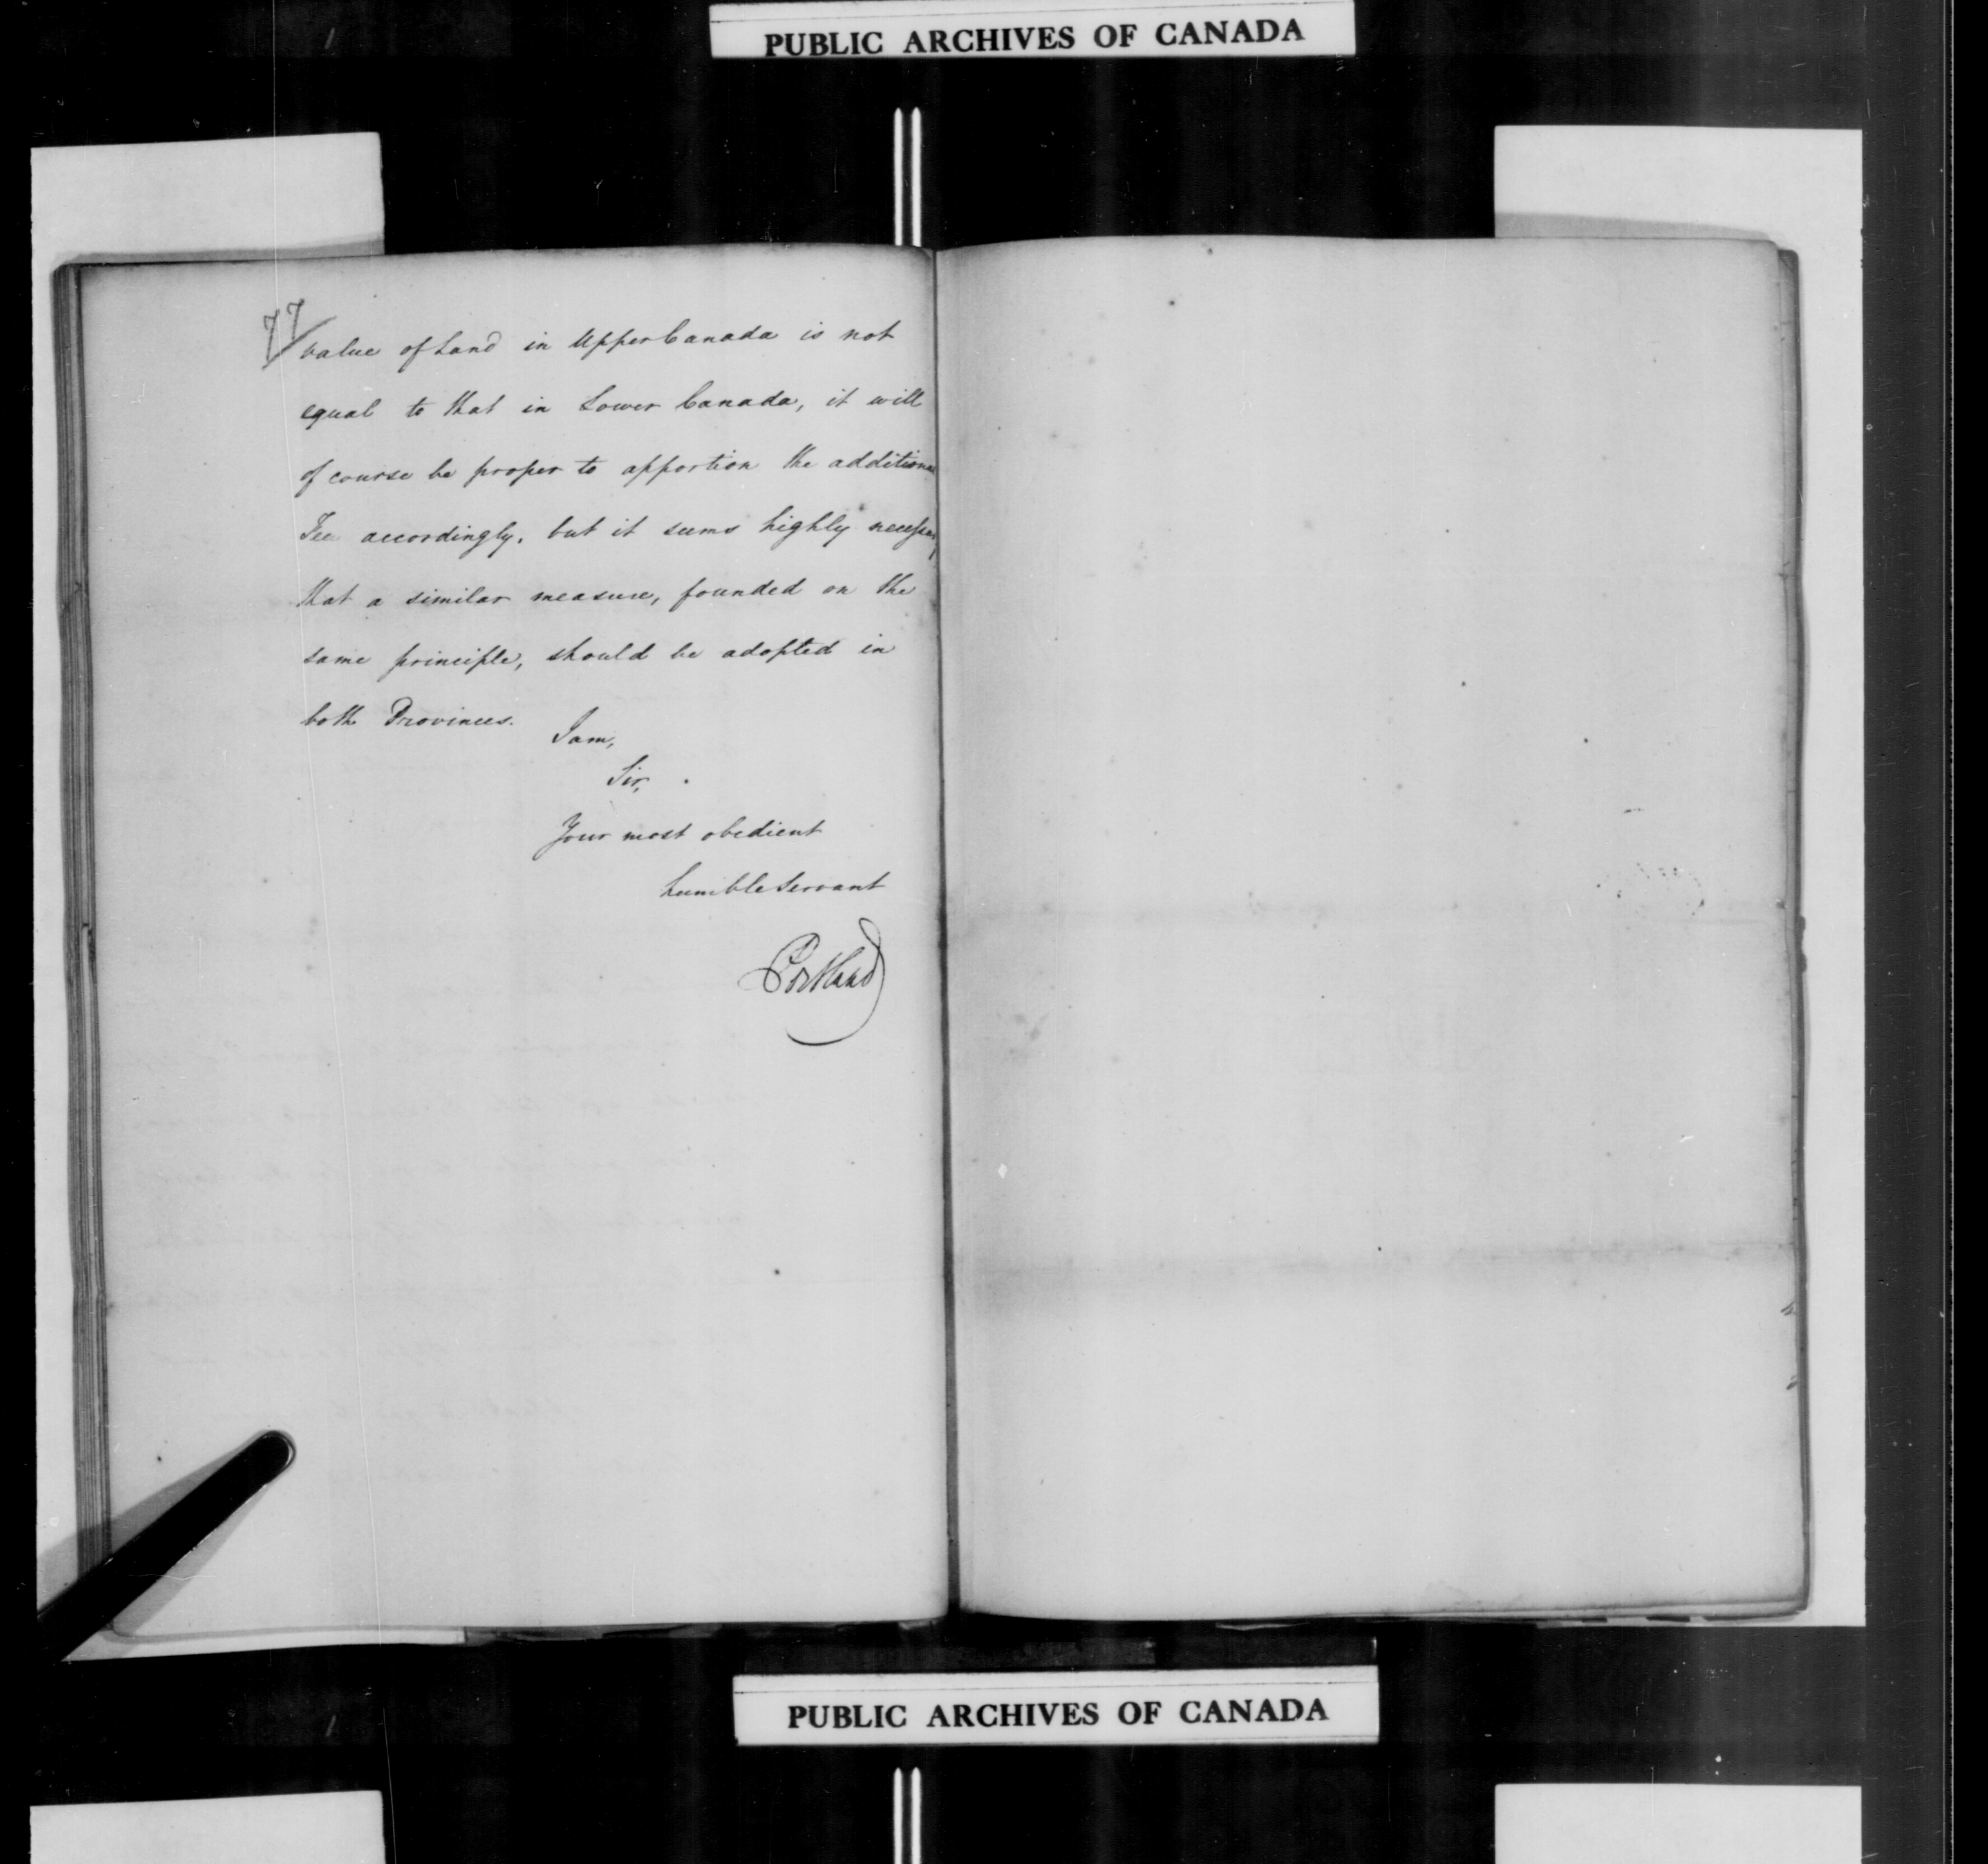 PUBLIC ARCHIVES OF CANADA
77
value of Land in Upper Canada is not
equal to that in Lower Canada, it will
of course be proper to apportion the additional
Fee accordingly, but it seems highly necessary
that a similar measure, founded on the
same principle, should be adopted in
both Provinces.
I am,
Sir,
Your most obedient
humble Servant
Portland
PUBLIC ARCHIVES OF CANADA